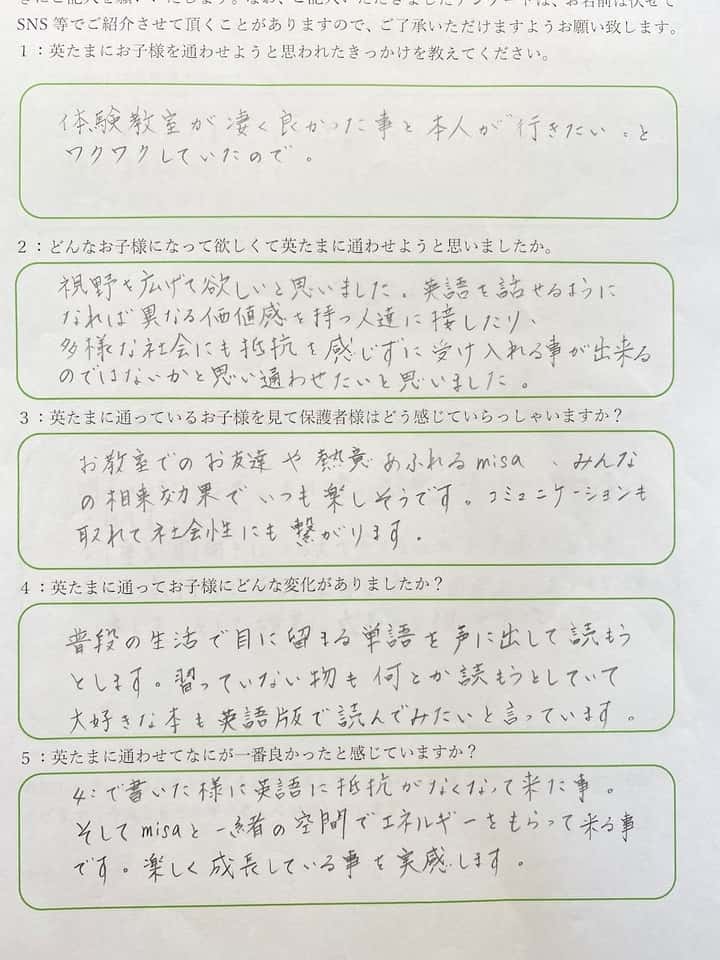 きにご記入お願いいたします。なお、ご記入いただきましたアンケートは、お名前は伏せて
SNS 等でご紹介させて頂くことがありますので、ご了承いただけますようお願い致します。
１：英たまにお子様を通わせようと思われたきっかけを教えてください。
体験教室が凄く良かった事と本人が"行きたい。と
ワクワクしていたので。
２：どんなお子様になって欲しくて英たまに通わせようと思いましたか。
視野を広げて欲しいと思いました。英語を話せるように
なれば異なる価値感を持つ人達に接したり、
多様な社会にも抵抗を感じずに受け入れる事が出来る
のではないかと思い通わせたいと思いました。
３：英たまに通っているお子様を見て保護者様はどう感じていらっしゃいますか？
お教室でのお友達や熱意あふれるmisa、みんな
の相乗効果でいつも楽しそうです。コミュニケーションも
取れて社会性にも繋がります。
４：英たまに通ってお子様にどんな変化がありましたか？
普段の生活で目に留まる単語を声に出して読もう
とします。習っていない物も何とか読もうとしていて
大好きな本も英語版で読んでみたいと言っています。
５：英たまに通わせてなにが一番良かったと感じていますか？
4:で書いた様に英語に抵抗がなくなって来た事。
そしてmisaと一緒の空間でエネルギーをもらって来る事
です。楽しく成長している事を実感します。